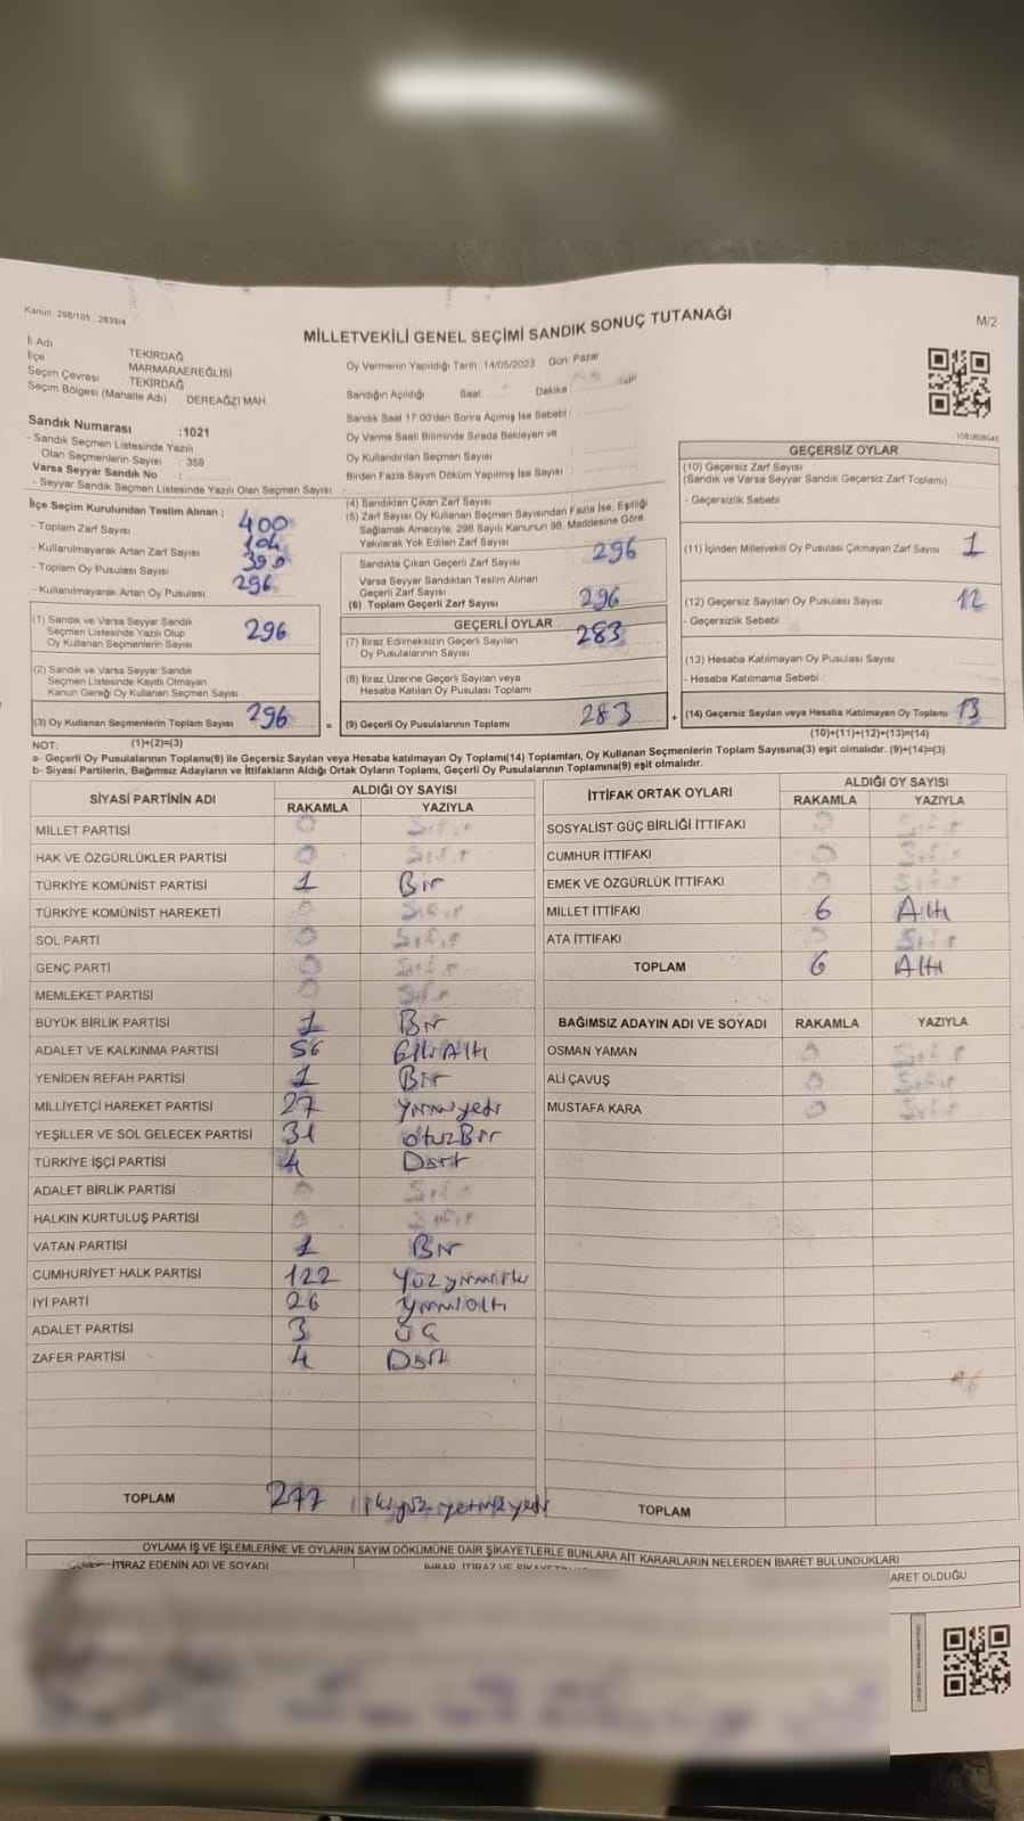 Kanun: 298/105 - 2839/4
MİLLETVEKİLİ GENEL SEÇİMİ SANDIK SONUÇ TUTANAĞI
M/2
İl Adı TEKİRDAĞ
İlçe MARMARAEREĞLİSİ
Seçim Çevresi TEKİRDAĞ
Seçim Bölgesi (Mahalle Adı) DEREAĞZI MAH.
Oy Vermenin Yapıldığı Tarih: 14/05/2023 Gün: Pazar
Sandığın Açıldığı Saat Dakika
Sandık Saat 17:00'den Sonra Açılmış İse Sebebi:
Oy Verme Saati Bitiminde Sırada Bekleyen ve
Oy Kullandırılan Seçmen Sayısı
Birden Fazla Sayım Döküm Yapılmış İse Sayısı
Sandık Numarası :1021
- Sandık Seçmen Listesinde Yazılı
Olan Seçmenlerin Sayısı : 358
Varsa Seyyar Sandık No :
- Seyyar Sandık Seçmen Listesinde Yazılı Olan Seçmen Sayısı:
İlçe Seçim Kurulundan Teslim Alınan :
- Toplam Zarf Sayısı 400
- Kullanılmayarak Artan Zarf Sayısı 104
- Toplam Oy Pusulası Sayısı
- Kullanılmayarak Artan Oy Pusulası 296
(1) Sandık ve Varsa Seyyar Sandık
Seçmen Listesinde Yazılı Olup
Oy Kullanan Seçmenlerin Sayısı 296
(2) Sandık ve Varsa Seyyar Sandık
Seçmen Listesinde Kayıtlı Olmayan
Kanun Gereği Oy Kullanan Seçmen Sayısı
(3) Oy Kullanan Seçmenlerin Toplam Sayısı 296 =
(1)+(2)=(3)
(4) Sandıktan Çıkan Zarf Sayısı
(5) Zarf Sayısı Oy Kullanan Seçmen Sayısından Fazla İse, Eşitliği
Sağlamak Amacıyle, 298 Sayılı Kanunun 98. Maddesine Göre
Yakılarak Yok Edilen Zarf Sayısı
Sandıkta Çıkan Geçerli Zarf Sayısı 296
Varsa Seyyar Sandıktan Teslim Alınan
Geçerli Zarf Sayısı
(6) Toplam Geçerli Zarf Sayısı 296
GEÇERLİ OYLAR
(7) İtiraz Edilmeksizin Geçerli Sayılan
Oy Pusulalarının Sayısı 283
(8) İtiraz Üzerine Geçerli Sayılan veya
Hesaba Katılan Oy Pusulası Toplamı
(9) Geçerli Oy Pusulalarının Toplamı 283 +
GEÇERSİZ OYLAR
(10) Geçersiz Zarf Sayısı
(Sandık ve Varsa Seyyar Sandık Geçersiz Zarf Toplamı)
- Geçersizlik Sebebi
(11) İçinden Milletvekili Oy Pusulası Çıkmayan Zarf Sayısı 1
(12) Geçersiz Sayılan Oy Pusulası Sayısı 12
- Geçersizlik Sebebi
(13) Hesaba Katılmayan Oy Pusulası Sayısı
- Hesaba Katılmama Sebebi
(14) Geçersiz Sayılan veya Hesaba Katılmayan Oy Toplamı 13
(10)+(11)+(12)+(13)=(14)
NOT:
a- Geçerli Oy Pusulalarının Toplamı(9) ile Geçersiz Sayılan veya Hesaba katılmayan Oy Toplamı(14) Toplamları, Oy Kullanan Seçmenlerin Toplam Sayısına(3) eşit olmalıdır. (9)+(14)=(3)
b- Siyasi Partilerin, Bağımsız Adayların ve İttifakların Aldığı Ortak Oyların Toplamı, Geçerli Oy Pusulalarının Toplamına(9) eşit olmalıdır.
SİYASİ PARTİNİN ADI ALDIĞI OY SAYISI
RAKAMLA YAZIYLA
MİLLET PARTİSİ 0 Sıfır
HAK VE ÖZGÜRLÜKLER PARTİSİ 0 Sıfır
TÜRKİYE KOMÜNİST PARTİSİ 1 Bir
TÜRKİYE KOMÜNİST HAREKETİ 0 Sıfır
SOL PARTİ 0 Sıfır
GENÇ PARTİ 0 Sıfır
MEMLEKET PARTİSİ 0 Sıfır
BÜYÜK BİRLİK PARTİSİ 1 Bir
ADALET VE KALKINMA PARTİSİ 56 Elli Altı
YENİDEN REFAH PARTİSİ 1 Bir
MİLLİYETÇİ HAREKET PARTİSİ 27 Yirmi yedi
YEŞİLLER VE SOL GELECEK PARTİSİ 31 otuz Bir
TÜRKİYE İŞÇİ PARTİSİ 4 Dört
ADALET BİRLİK PARTİSİ 0 Sıfır
HALKIN KURTULUŞ PARTİSİ 0 Sıfır
VATAN PARTİSİ 1 Bir
CUMHURİYET HALK PARTİSİ 122 Yüz yirmi iki
İYİ PARTİ 26 Yirmi altı
ADALET PARTİSİ 3 Üç
ZAFER PARTİSİ 4 Dört
TOPLAM 277 iki yüz yetmiş yedi
İTTİFAK ORTAK OYLARI ALDIĞI OY SAYISI
RAKAMLA YAZIYLA
SOSYALİST GÜÇ BİRLİĞİ İTTİFAKI 0 Sıfır
CUMHUR İTTİFAKI 0 Sıfır
EMEK VE ÖZGÜRLÜK İTTİFAKI 0 Sıfır
MİLLET İTTİFAKI 6 Altı
ATA İTTİFAKI 0 Sıfır
TOPLAM 6 Altı
BAĞIMSIZ ADAYIN ADI VE SOYADI RAKAMLA YAZIYLA
OSMAN YAMAN 0 Sıfır
ALİ ÇAVUŞ 0 Sıfır
MUSTAFA KARA 0 Sıfır
TOPLAM
OYLAMA İŞ VE İŞLEMLERİNE VE OYLARIN SAYIM DÖKÜMÜNE DAİR ŞİKAYETLERLE BUNLARA AİT KARARLARIN NELERDEN İBARET BULUNDUKLARI
İTİRAZ EDENİN ADI VE SOYADI
ARET OLDUĞU